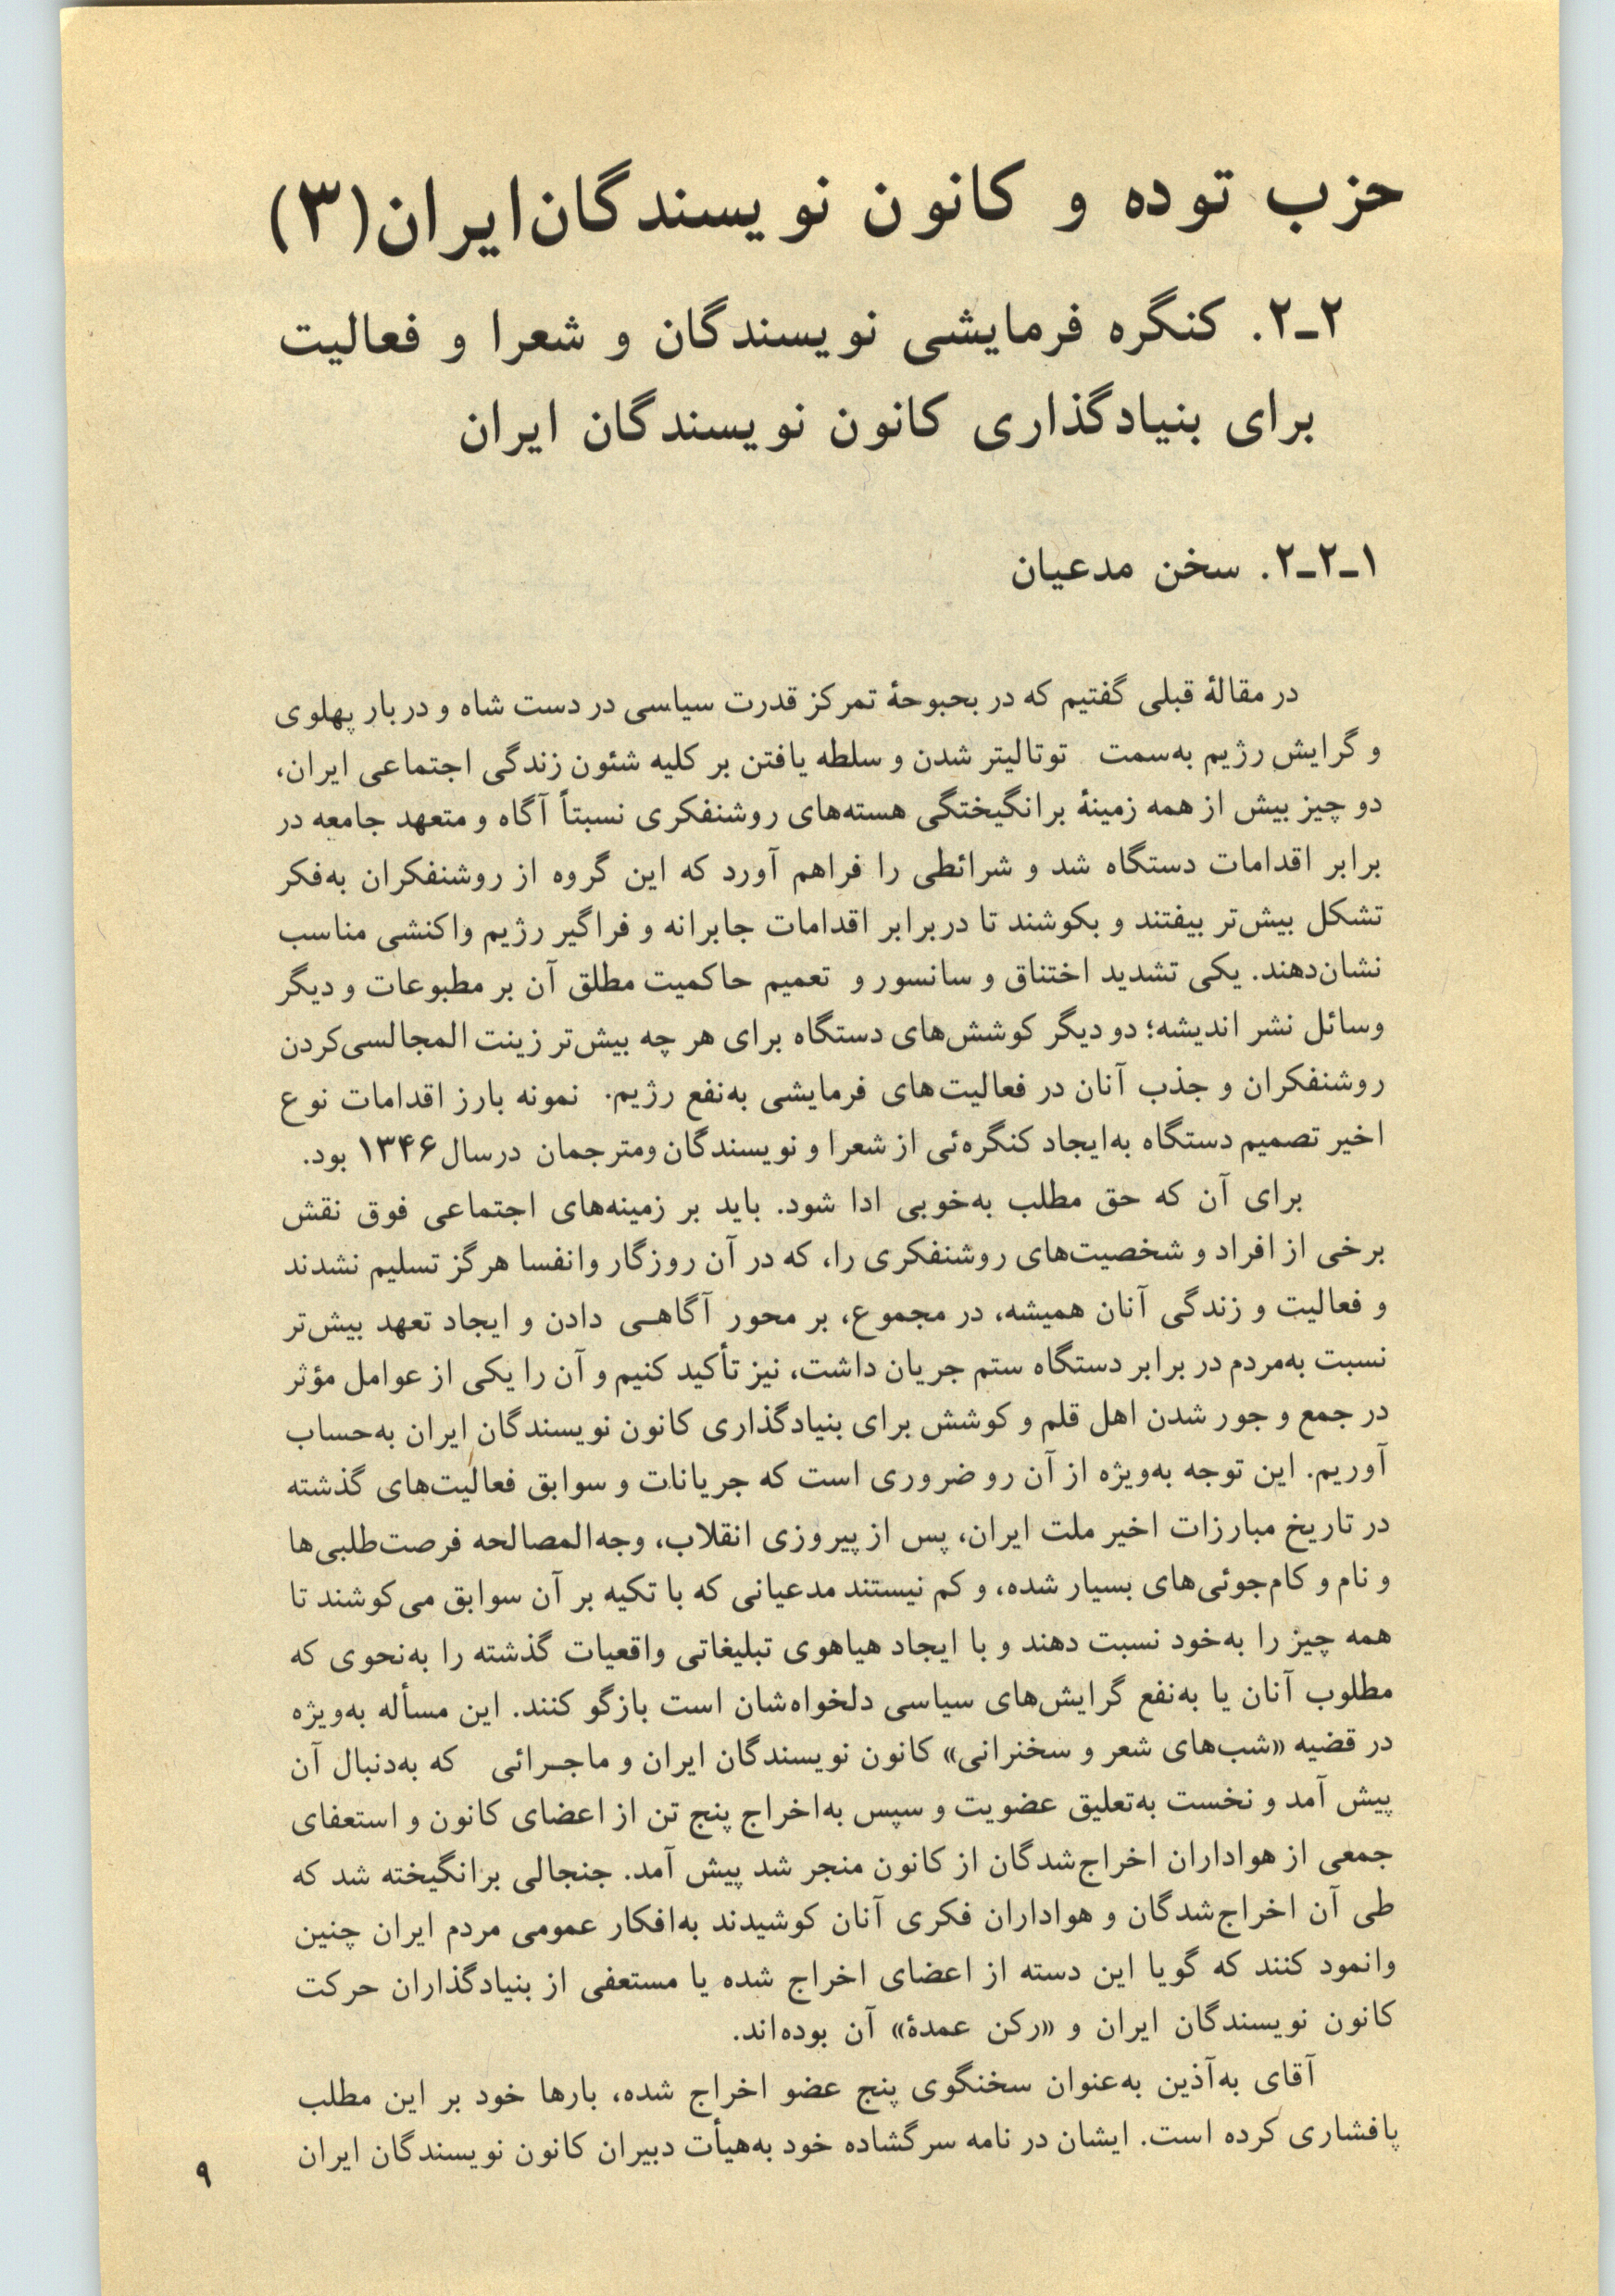 حزب توده و کانون نویسندگان‌ایران(۳)
۲ـ۲. کنگره فرمایشی نویسندگان و شعرا و فعالیت
برای بنیادگذاری کانون نویسندگان ایران
۱ـ۲ـ۲. سخن مدعیان
در مقالهٔ قبلی گفتیم که در بحبوحهٔ تمرکز قدرت سیاسی در دست شاه و دربار پهلوی
و گرایش رژیم به‌سمت توتالیتر شدن و سلطه یافتن بر کلیه شئون زندگی اجتماعی ایران،
دو چیز بیش از همه زمینهٔ برانگیختگی هسته‌های روشنفکری نسبتاً آگاه و متعهد جامعه در
برابر اقدامات دستگاه شد و شرائطی را فراهم آورد که این گروه از روشنفکران به‌فکر
تشکل بیش‌تر بیفتند و بکوشند تا دربرابر اقدامات جابرانه و فراگیر رژیم واکنشی مناسب
نشان‌دهند. یکی تشدید اختناق و سانسور و تعمیم حاکمیت مطلق آن بر مطبوعات و دیگر
وسائل نشر اندیشه؛ دو دیگر کوشش‌های دستگاه برای هر چه بیش‌تر زینت المجالسی‌کردن
روشنفکران و جذب آنان در فعالیت‌های فرمایشی به‌نفع رژیم. نمونه بارز اقدامات نوع
اخیر تصمیم دستگاه به‌ایجاد کنگره‌ئی از شعرا و نویسندگان ومترجمان درسال ۱۳۴۶ بود.
برای آن که حق مطلب به‌خوبی ادا شود. باید بر زمینه‌های اجتماعی فوق نقش
برخی از افراد و شخصیت‌های روشنفکری را، که در آن روزگار وانفسا هرگز تسلیم نشدند
و فعالیت و زندگی آنان همیشه، در مجموع، بر محور آگاهـی دادن و ایجاد تعهد بیش‌تر
نسبت به‌مردم در برابر دستگاه ستم جریان داشت، نیز تأکید کنیم و آن را یکی از عوامل مؤثر
در جمع و جور شدن اهل قلم و کوشش برای بنیادگذاری کانون نویسندگان ایران به‌حساب
آوریم. این توجه به‌ویژه از آن رو ضروری است که جریانات و سوابق فعالیت‌های گذشته
در تاریخ مبارزات اخیر ملت ایران، پس از پیروزی انقلاب، وجه‌المصالحه فرصت‌طلبی‌ها
و نام و کام‌جوئی‌های بسیار شده، و کم نیستند مدعیانی که با تکیه بر آن سوابق می‌کوشند تا
همه چیز را به‌خود نسبت دهند و با ایجاد هیاهوی تبلیغاتی واقعیات گذشته را به‌نحوی که
مطلوب آنان یا به‌نفع گرایش‌های سیاسی دلخواه‌شان است بازگو کنند. این مسأله به‌ویژه
در قضیه «شب‌های شعر و سخنرانی» کانون نویسندگان ایران و ماجـرائی که به‌دنبال آن
پیش آمد و نخست به‌تعلیق عضویت و سپس به‌اخراج پنج تن از اعضای کانون و استعفای
جمعی از هواداران اخراج‌شدگان از کانون منجر شد پیش آمد. جنجالی برانگیخته شد که
طی آن اخراج‌شدگان و هواداران فکری آنان کوشیدند به‌افکار عمومی مردم ایران چنین
وانمود کنند که گویا این دسته از اعضای اخراج شده یا مستعفی از بنیادگذاران حرکت
کانون نویسندگان ایران و «رکن عمدهٔ» آن بوده‌اند.
آقای به‌آذین به‌عنوان سخنگوی پنج عضو اخراج شده، بارها خود بر این مطلب
پافشاری کرده است. ایشان در نامه سرگشاده خود به‌هیأت دبیران کانون نویسندگان ایران
۹